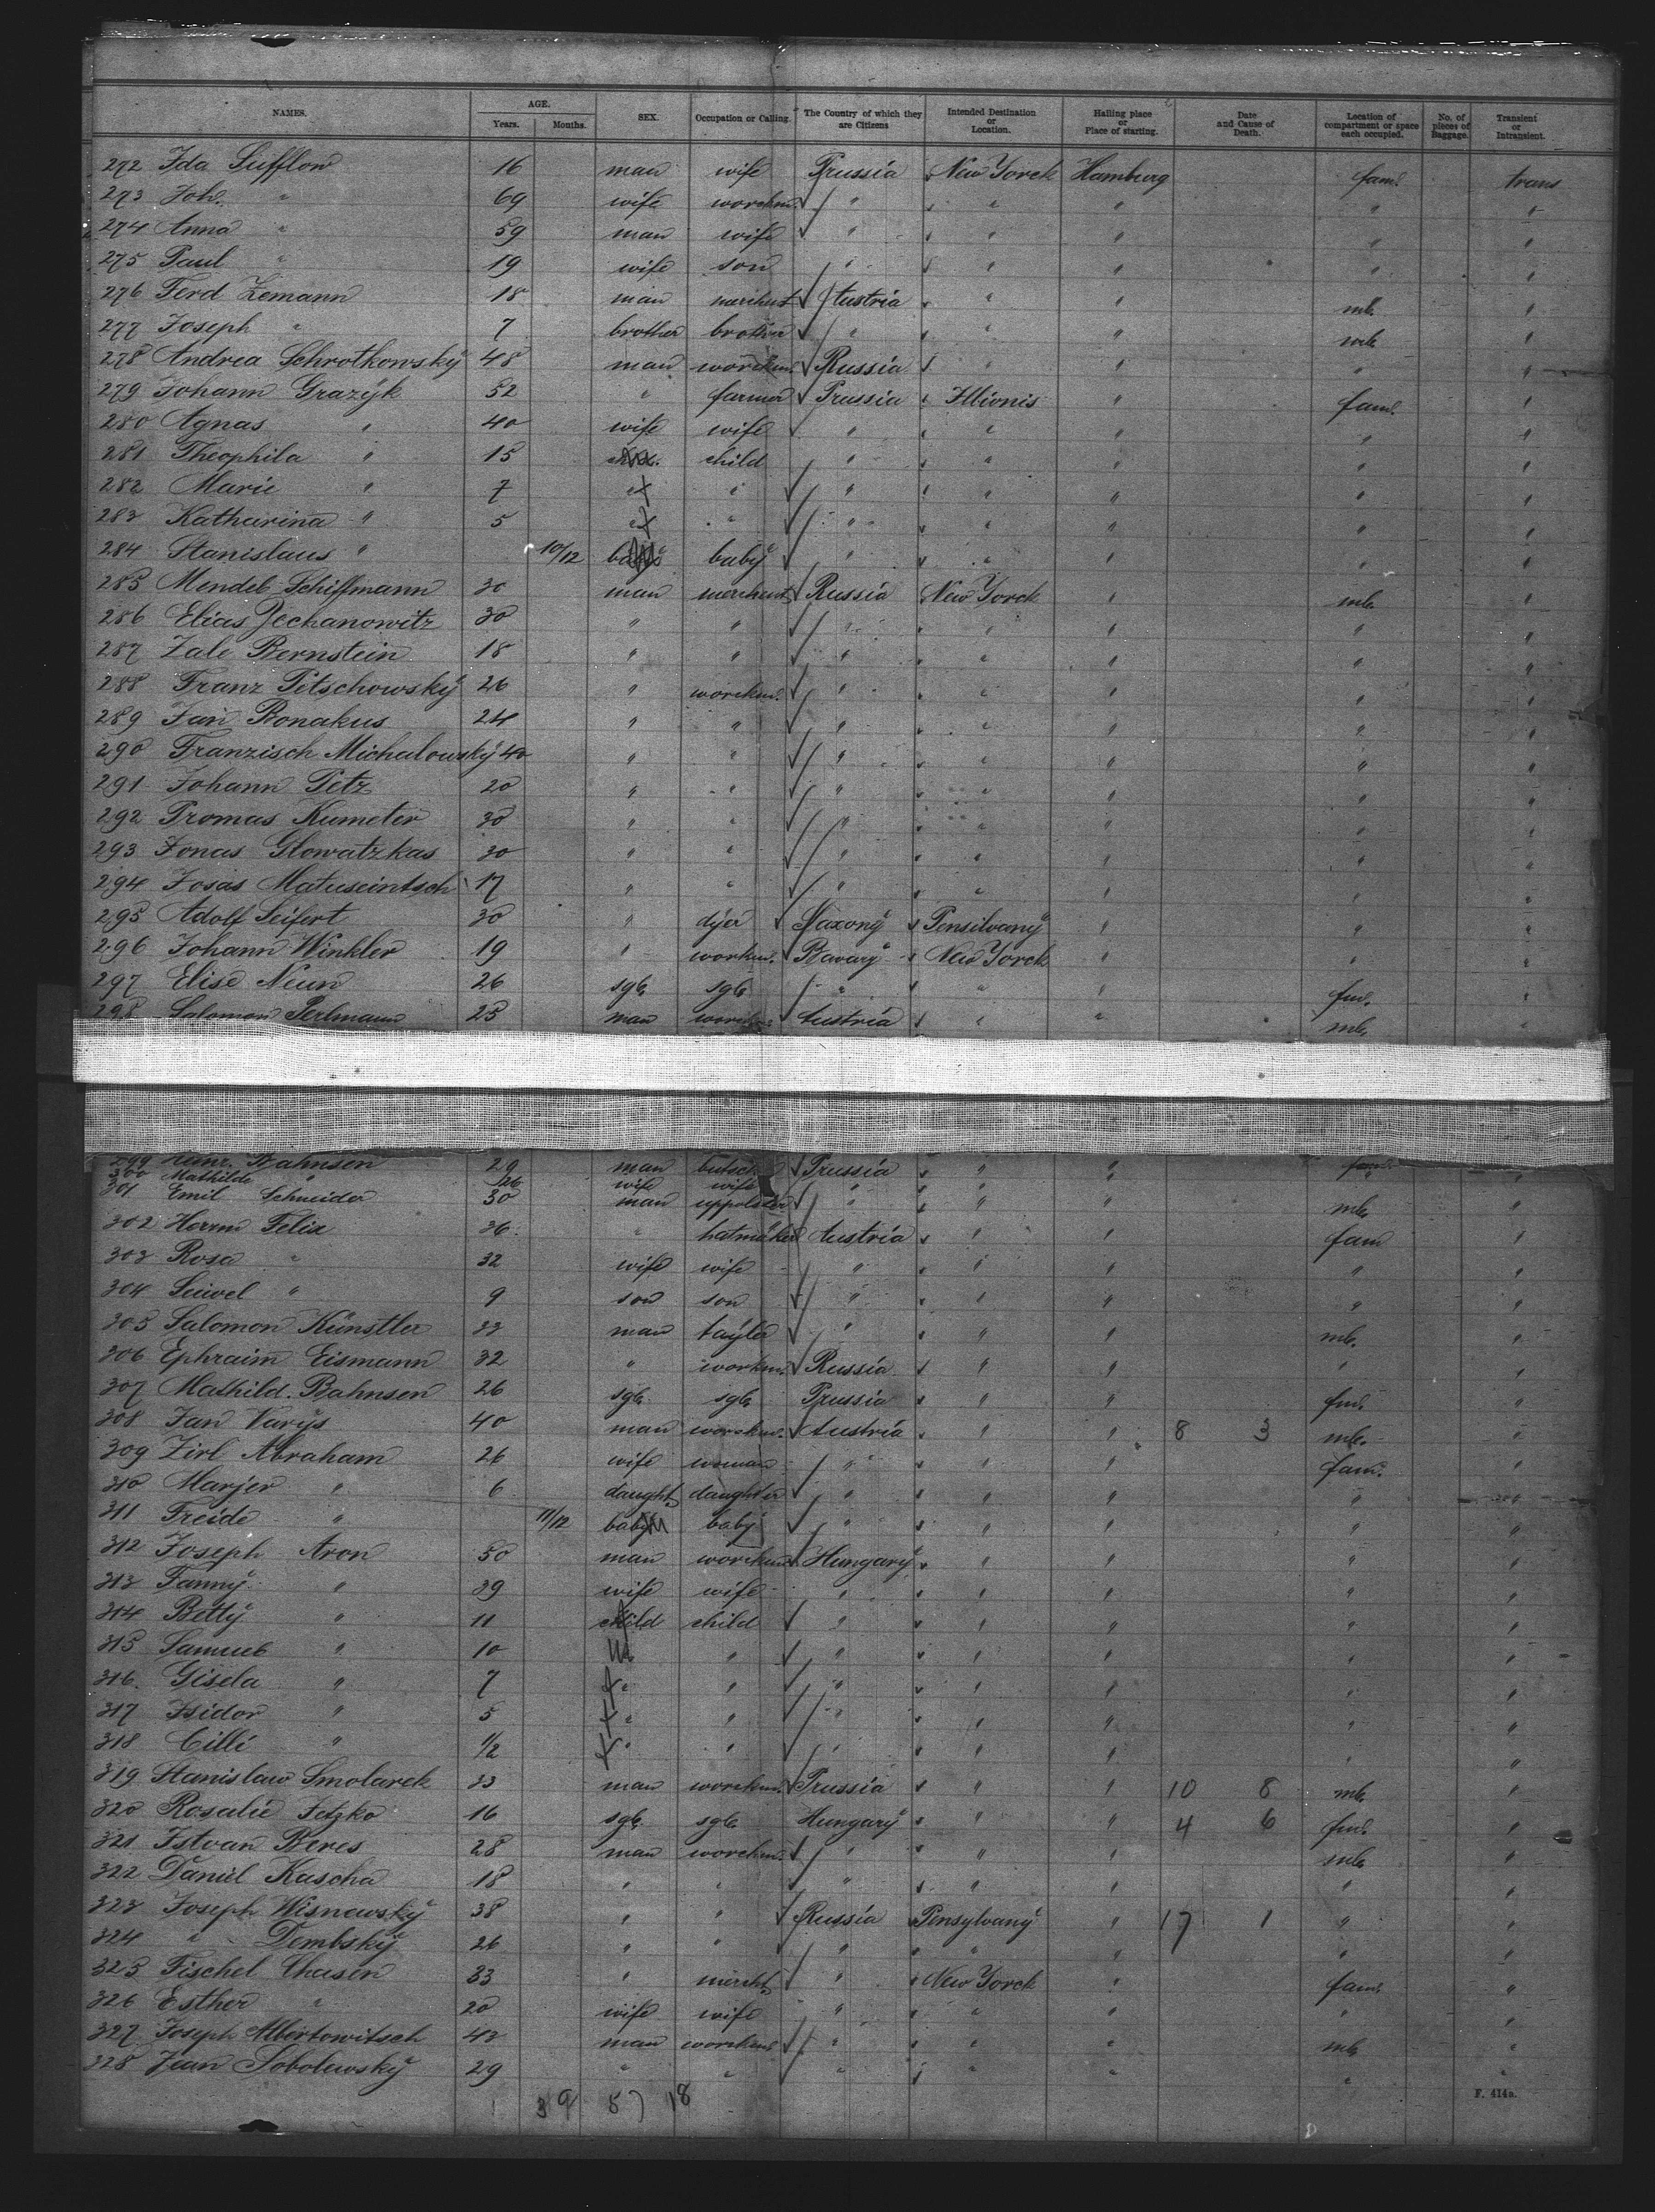 NAMES. AGE. Years. Months. SEX. Occupation or Calling. The Country of which they are Citizens Intended Destination or Location. Hailing place or Place of starting. Date and Cause of Death. Location of compartment or space each occupied. No. of pieces of Baggage. Transient or Intransient.
272 Ida Sufflow 16 man wife Prussia New Yorck Hamburg fam. trans
273 Joh. " 69 wife worckm. " " " " "
274 Anna " 59 man wife " " " " "
275 Paul " 19 wife son " " " " "
276 Ferd Zemann 18 man merchent Austria " " mle "
277 Joseph " 7 brother brother " " " mle "
278 Andrea Schrotkowsky 48 man worckm. Russia " " " "
279 Johann Grazyk 52 " farmer Prussia Illionis " fam. "
280 Agnas " 40 wife wife " " " " "
281 Theophila " 15 child " " " " "
282 Marie " 7 " " " " " " "
283 Katharina " 5 " " " " " " "
284 Stanislaus " 10/12 baby baby " " " " "
285 Mendel Schiffmann 30 man merchent Russia New Yorck " mle "
286 Elias Zechanowitz 30 " " " " " " "
287 Zale Bernstein 18 " " " " " " "
288 Franz Pitschowsky 26 " worckm. " " " " "
289 Jan Ronakus 24 " " " " " " "
290 Franzisch Michalowsky 40 " " " " " " "
291 Johann Petz 20 " " " " " " "
292 Tromas Kumeter 30 " " " " " " "
293 Jonas Glowatzkas 30 " " " " " " "
294 Josas Matuseintsch 17 " " " " " " "
295 Adolf Seifert 30 " dyer Saxony Pensilvany " " "
296 Johann Winkler 19 " workm. Bavary New Yorck " " "
297 Elise Neun 26 sgle sgle " " " fm. "
298 Salomon Perlmann 25 man Austria " " mle "
299 Bahnsen 29 man Prussia " " "
300 Mathilde " 26 wife wife " " " " "
301 Emil Schneider 30 man uppolster " " " mle "
302 Herrm Felix 36 " hatmaker Austria " " fam "
303 Rosa " 32 wife wife " " " " "
304 Seiwel " 9 son son " " " " "
305 Salomon Künstler 33 man tayler " " " mle. "
306 Ephraim Eismann 32 " workm. Russia " " " "
307 Mathild. Bahnsen 26 sgle sgle Prussia " " fm. "
308 Jan Varys 40 man worckm. Austria " " 8 3 mle. "
309 Zirl Abraham 26 wife woman " " " fam. "
310 Marjer " 6 daught. daughter " " " " "
311 Freide " 11/12 baby baby " " " " "
312 Joseph Aron 50 man worckm. Hungary " " " "
313 Fanny " 39 wife wife " " " " "
314 Betty " 11 child child " " " " "
315 Samuel " 10 M " " " " " "
316. Gisela " 7 " " " " " " "
317 Isidor " 5 " " " " " " "
318 Cilli " 1/2 " " " " " " "
319 Stanislaw Smolarek 33 man worckm. Prussia " " 10 8 mle "
320 Rosalie Jetzko 16 sgle. sgle Hungary " " 4 6 fm. "
321 Istvan Beres 28 man worckm. " " " mle "
322 Daniel Kascha 18 " " " " " " "
323 Joseph Wisnewsky 38 " " Russia Pensylvany " 17 1 " "
324 " Dembsky 26 " " " " " " "
325 Fischel Chasen 33 " mercht. " New Yorck " fam. "
326 Esther " 20 wife wife " " " " "
327 Joseph Albertowitsch 43 man worckm. " " " mle "
328 Jean Sobolewsky 29 " " " " " " "
39 57 18
F. 414a.